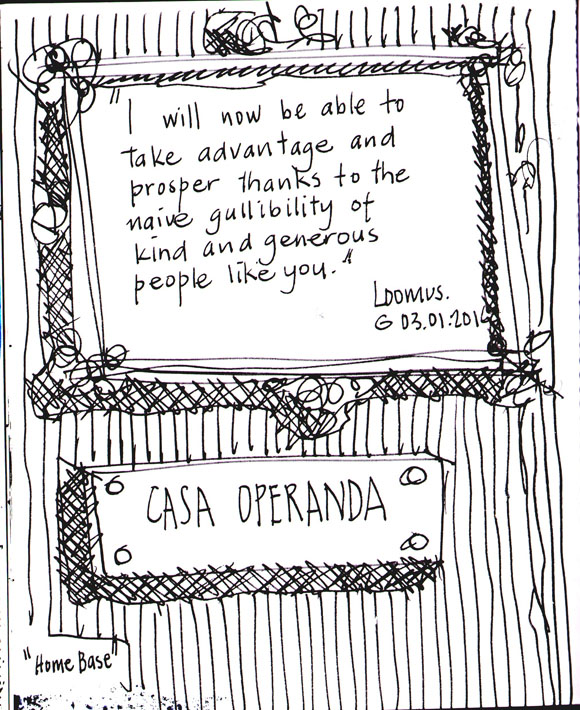 "I will now be able to
take advantage and
prosper thanks to the
naive gullibility of
kind and generous
people like you."
Loomus.
G 03.01.2014
CASA OPERANDA
"Home Base"